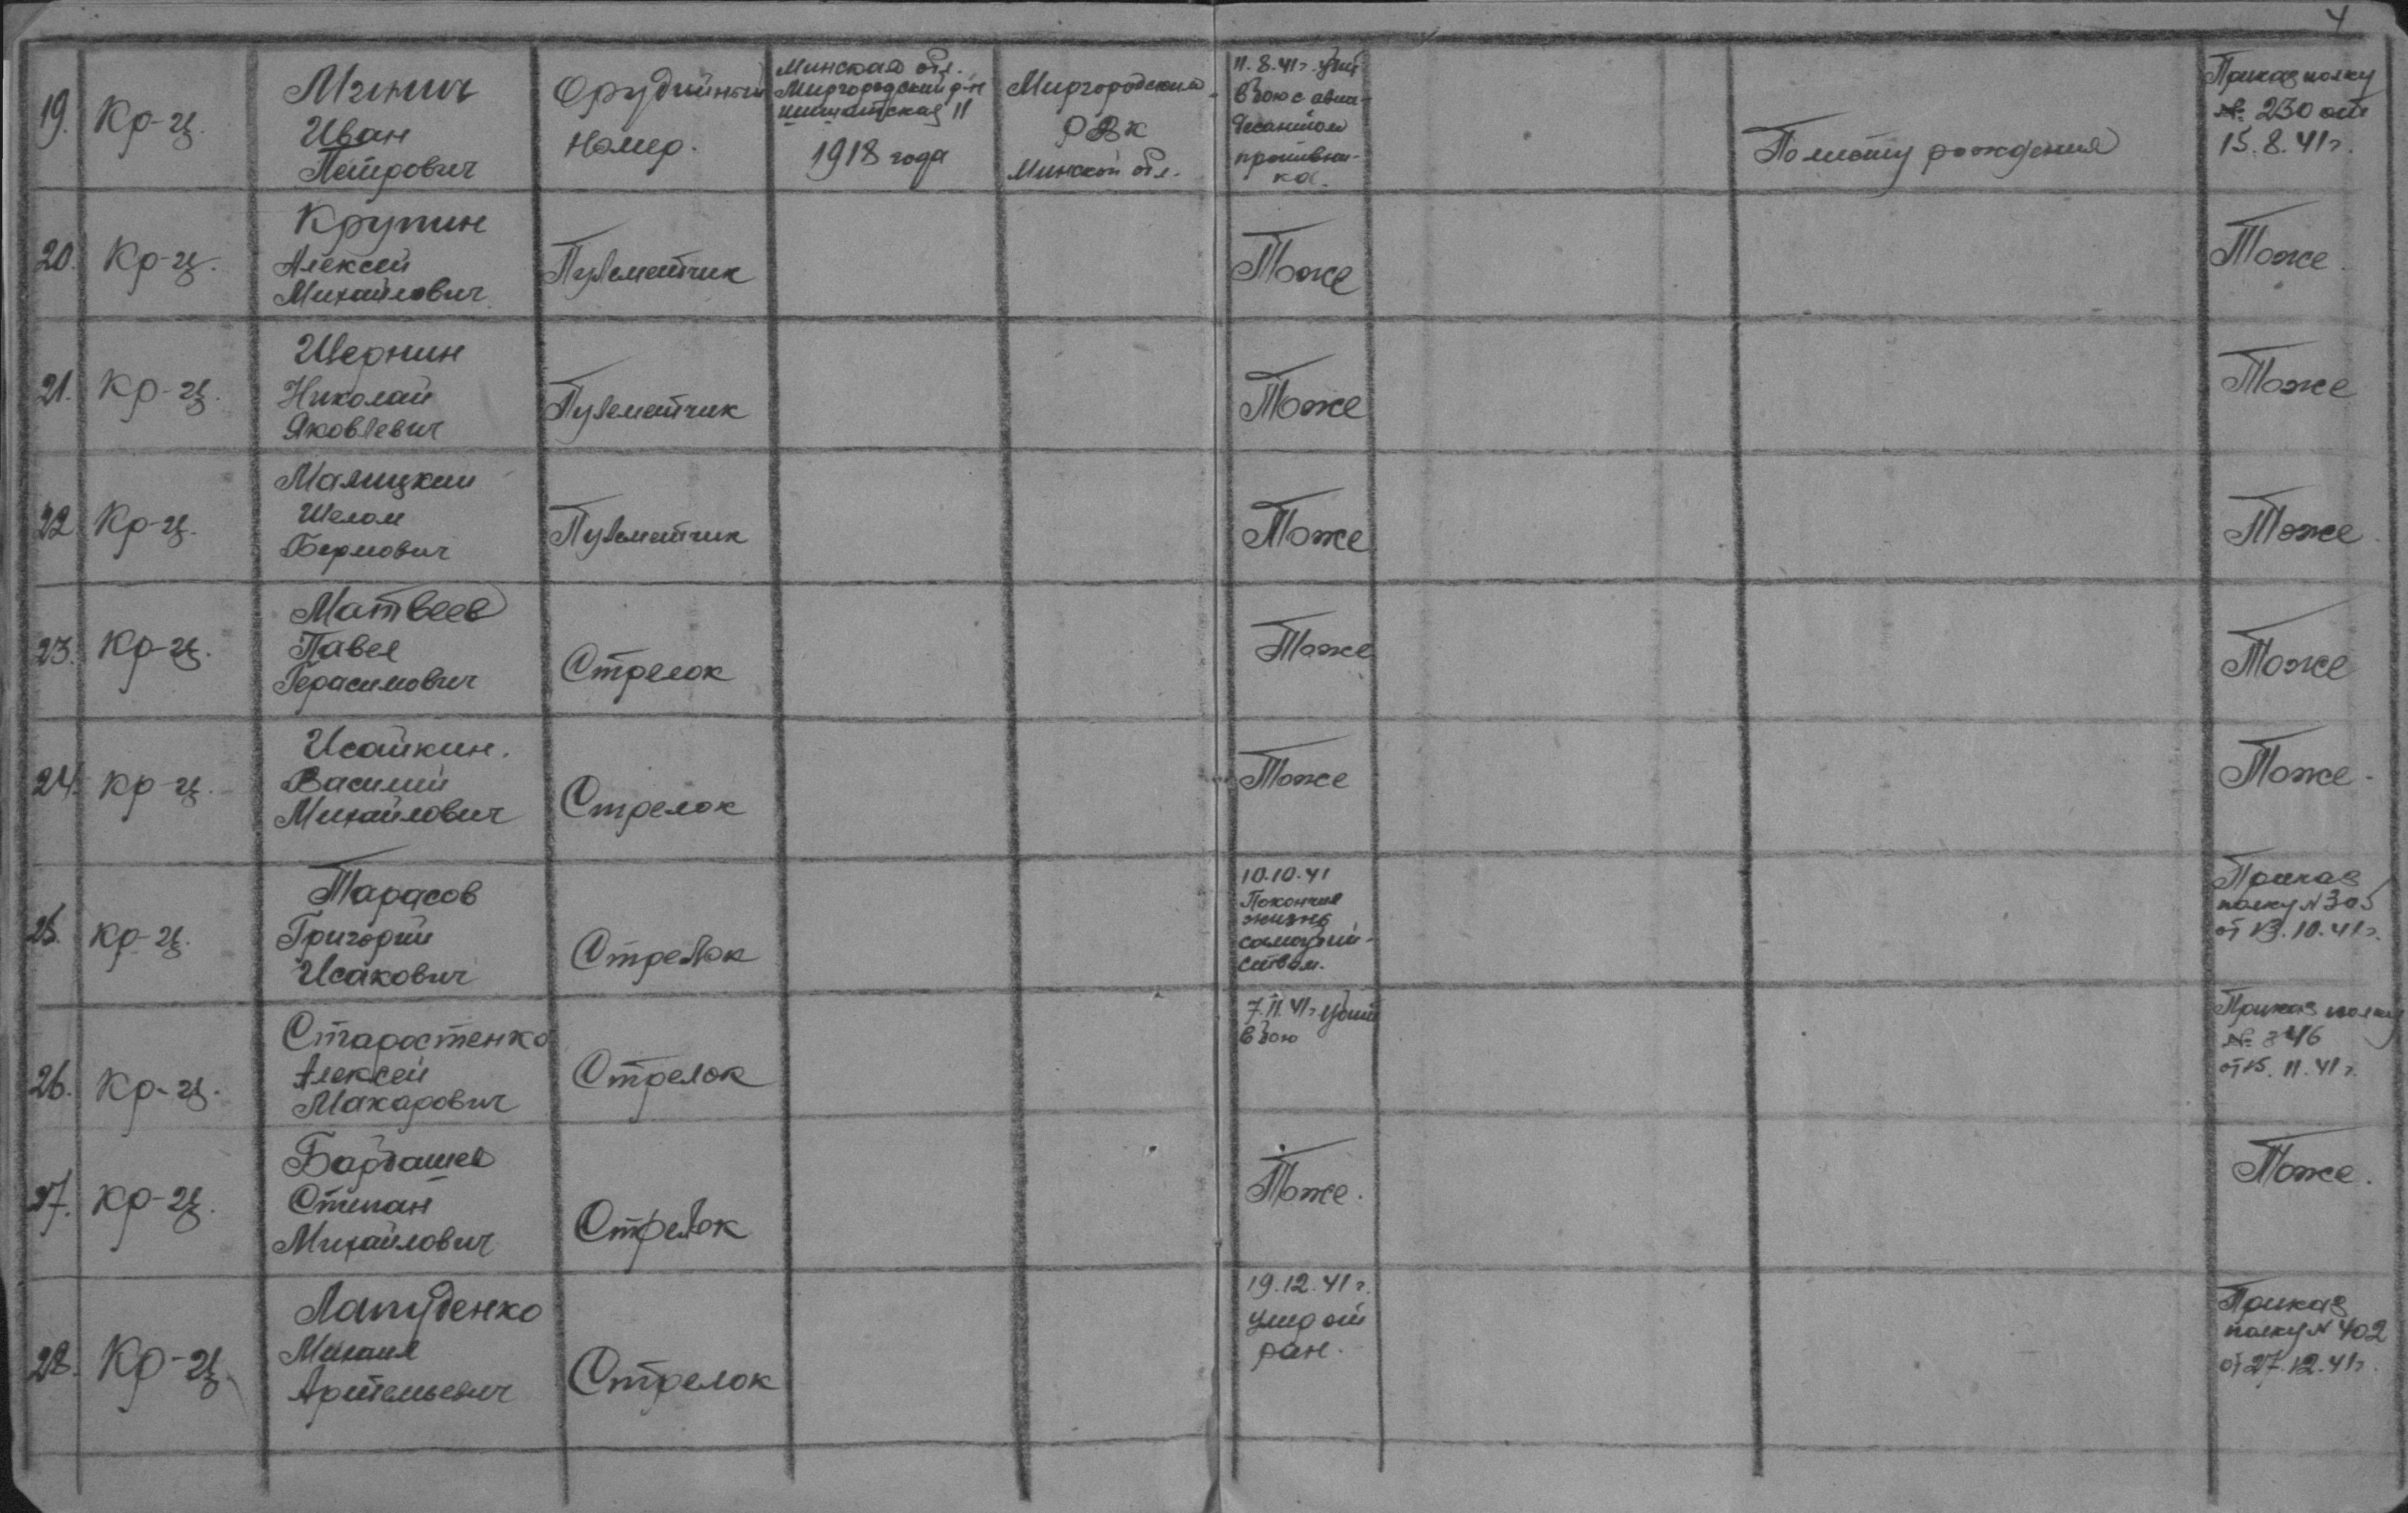 4
19. Кр-ц. Минич
Иван
Петрович
Орудийный
Номер.
Минская обл.
Миргородский р-н
11
1918 года
Миргородский
РВК
Минской обл.
11.8.41г. убит
в бою с авиа-
десантом
противни-
ка.
По месту рождения
Приказ полку
№ 230 от
15.8.41г.
20. Кр-ц. Крупин
Алексей
Михайлович
Пулеметчик
Тоже
Тоже.
21. Кр-ц. Шернин
Николай
Яковлевич
Пулеметчик
Тоже
Тоже
22. Кр-ц. Малицкий
Шелом
Пулеметчик
Тоже
Тоже.
23. Кр-ц. Матвеев
Павел
Герасимович
Стрелок
Тоже
Тоже
24. Кр-ц. Исайкин.
Василий
Михайлович
Стрелок
Тоже
Тоже.
25. Кр-ц. Тарасов
Григорий
Исакович
Стрелок
10.10.41
Покончил
жизнь
самоубий-
ством.
Приказ
полку № 305
от 13.10.41г.
26. Кр-ц. Старостенко
Алексей
Макарович
Стрелок
7.11.41г. убит
в бою
Приказ полку
№ 346
от 15.11.41г.
27. Кр-ц. Бардашев
Степан
Михайлович
Стрелок
Тоже.
Тоже.
28. Кр-ц. Лапуденко
Михаил
Артемьевич
Стрелок
19.12.41г.
умер от
ран.
Приказ
полку № 402
от 27.12.41г.